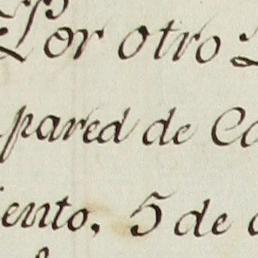 Por otro
pared de Co
iento, 5 de